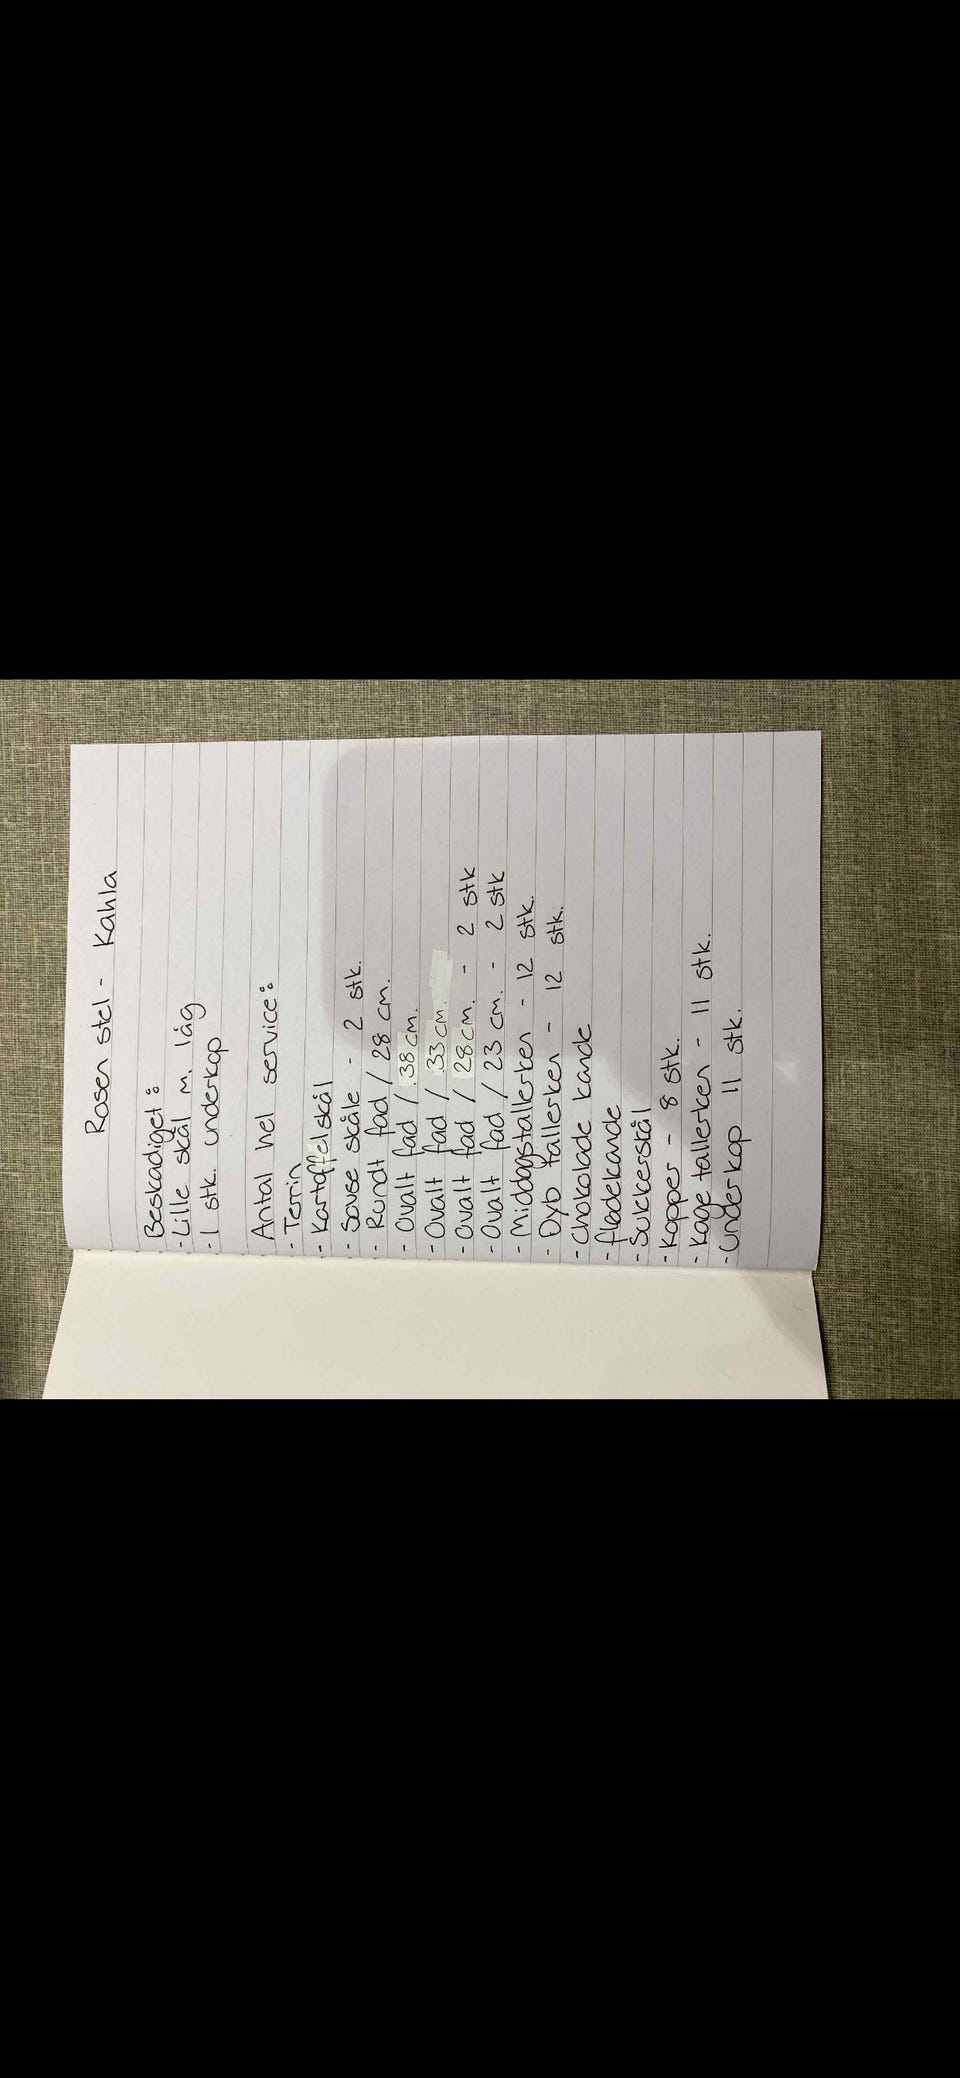 Rosen stel - Kahla
Beskadiget:
- Lille skål m. låg
- 1 stk. underkop
Antal hel service:
- Terrin
- Kartoffelskål
- Sovse skåle - 2 stk.
- Rundt fad / 28 cm.
- Ovalt fad / 38 cm.
- Ovalt fad / 33 cm.
- Ovalt fad / 28 cm. - 2 stk
- Ovalt fad / 23 cm. - 2 stk
- Middagstallerken - 12 stk.
- Dyb tallerken - 12 stk.
- Chokolade kande
- flødekande
- Sukkerskål
- Kopper - 8 stk.
- Kage tallerken - 11 stk.
- Underkop 11 stk.